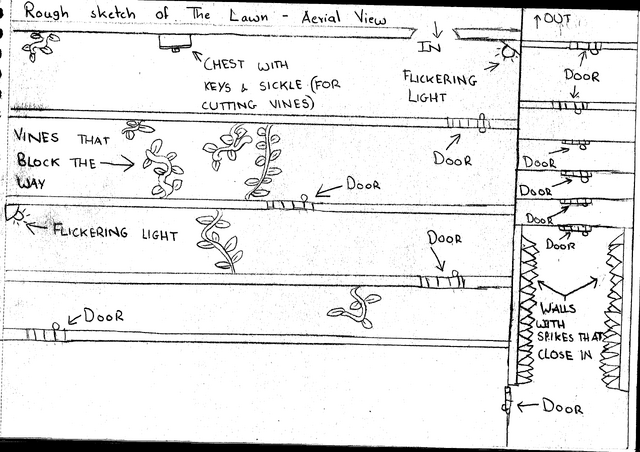 Rough sketch of The Lawn - Aerial View
↑ OUT
IN
CHEST WITH
KEYS & SICKLE (FOR
CUTTING VINES)
FLICKERING
LIGHT
DOOR
VINES THAT
BLOCK THE
WAY
DOOR
DOOR
DOOR
DOOR
DOOR
DOOR
FLICKERING LIGHT
DOOR
WALLS
WITH
SPIKES THAT
CLOSE IN
DOOR
DOOR